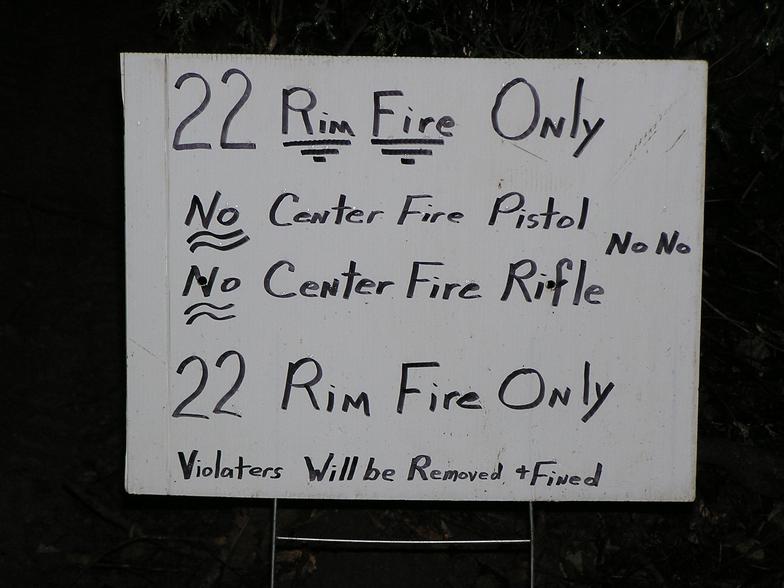 22 Rim Fire Only
No Center Fire Pistol
No No
No Center Fire Rifle
22 Rim Fire Only
Violaters Will be Removed + Fined